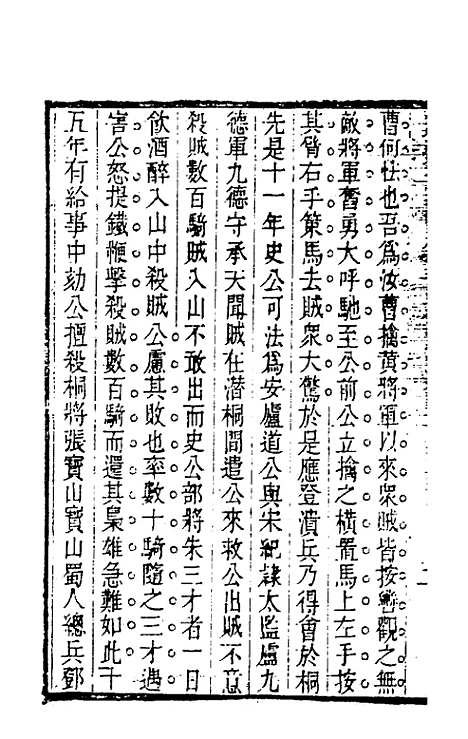 曹何怯也吾爲汝曹擒黃將軍以來衆賊皆按轡觀之無
敵將軍奮勇大呼馳至公前公立擒之橫置馬上左手按
其臂右手策馬去賊衆大驚於是應登潰兵乃得會於桐
先是十一年史公可法爲安廬道公與宋紀隷太監盧九
德軍九德守承天聞賊在潛桐間遣公來救公出賊不意
殺賊數百騎賊入山不敢出而史公部將朱三才者一日
飲酒醉入山中殺賊公慮其敗也率數十騎隨之三才遇
害公怒提鐵鞭擊殺賊數百騎而還其梟雄急難如此十
五年有給事中劾公擅殺桐將張寶山寶山蜀人總兵鄧